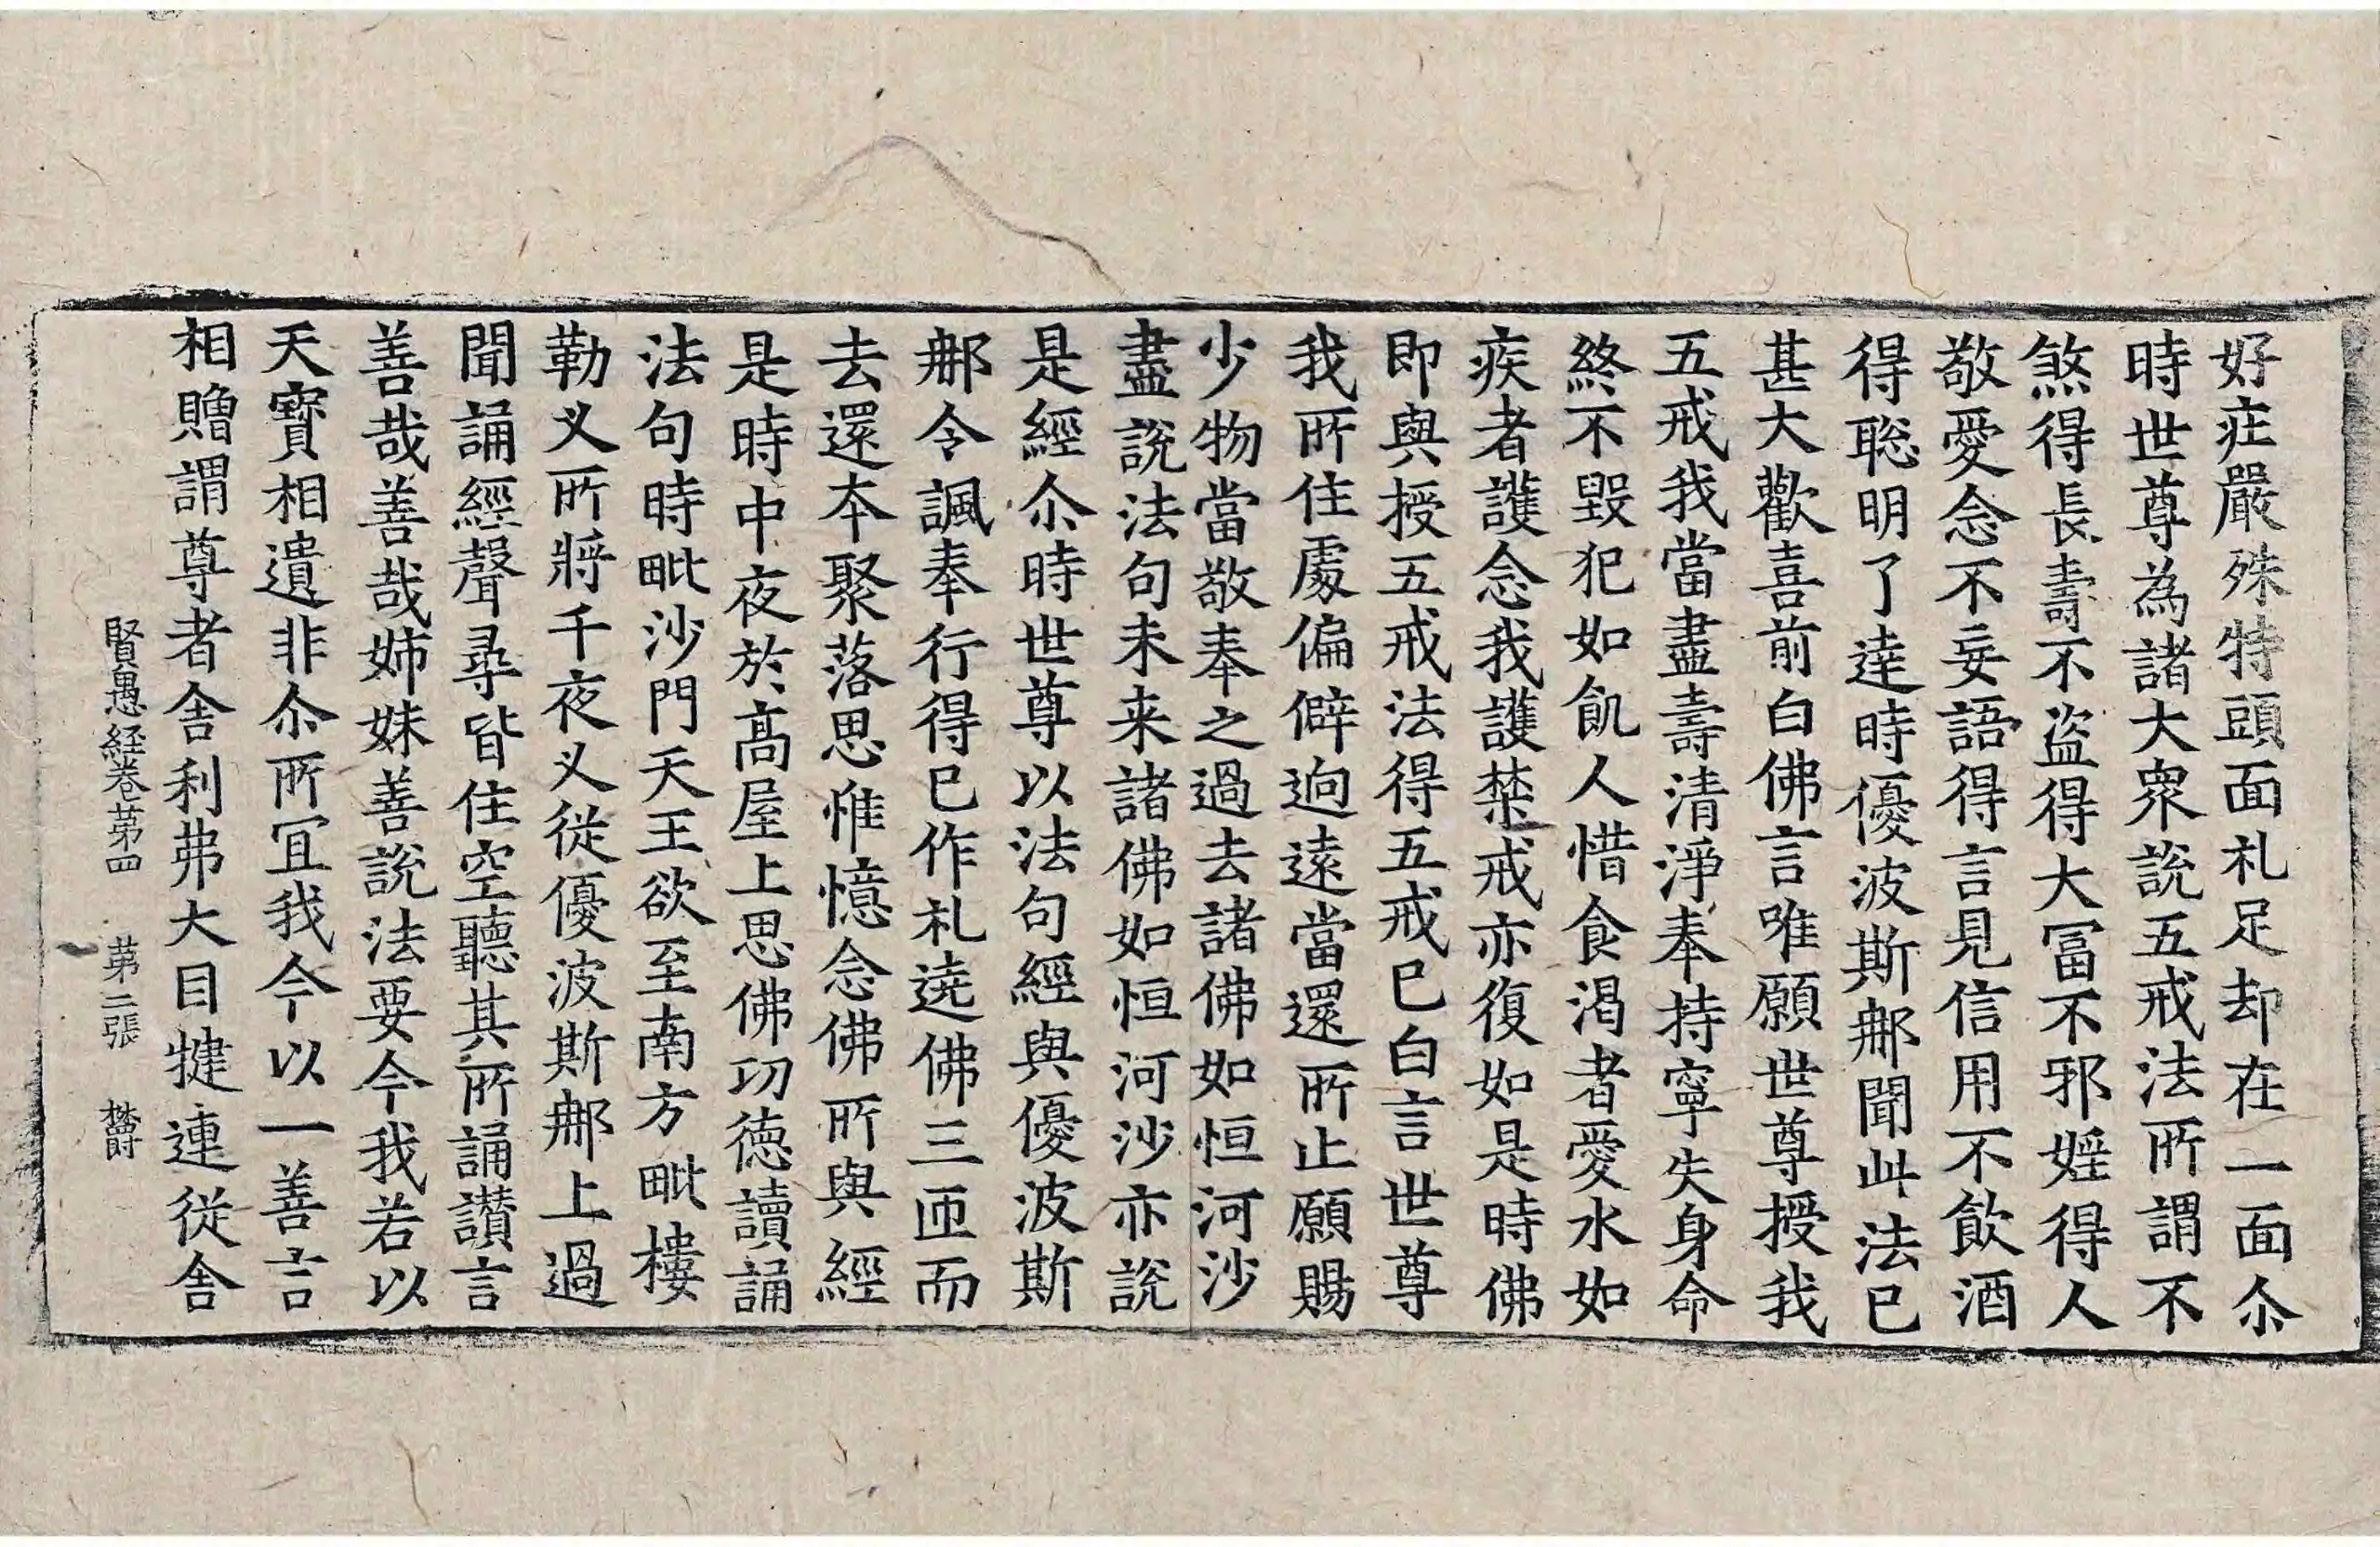 好庄嚴殊特頭面礼足却在一面尒
時世尊為諸大衆說五戒法所謂不
煞得長壽不盜得大冨不邪婬得人
敬愛念不妄語得言見信用不飲酒
得聡明了達時優波斯𨚗聞此法已
甚大歡喜前白佛言唯願世尊授我
五戒我當盡壽清淨奉持寧失身命
終不毀犯如飢人惜食渴者愛水如
疾者護念我護禁戒亦復如是時佛
即與授五戒法得五戒已白言世尊
我所住處偏僻逈遠當還所止願賜
少物當敬奉之過去諸佛如恒河沙
盡說法句未来諸佛如恒河沙亦說
是經尒時世尊以法句經與優波斯
𨚗令諷奉行得已作礼遶佛三匝而
去還本聚落思惟憶念佛所與經
是時中夜於高屋上思佛㓛徳讀誦
法句時毗沙門天王欲至南方毗樓
勒叉所將千夜叉從優波斯𨚗上過
聞誦經聲尋皆住空聽其所誦讃言
善哉善哉姉妹善說法要今我若以
天寶相遺非尒所冝我今以一善言
相贈謂尊者舎利弗大目揵連従舎
賢愚経卷苐四 苐二張 欝